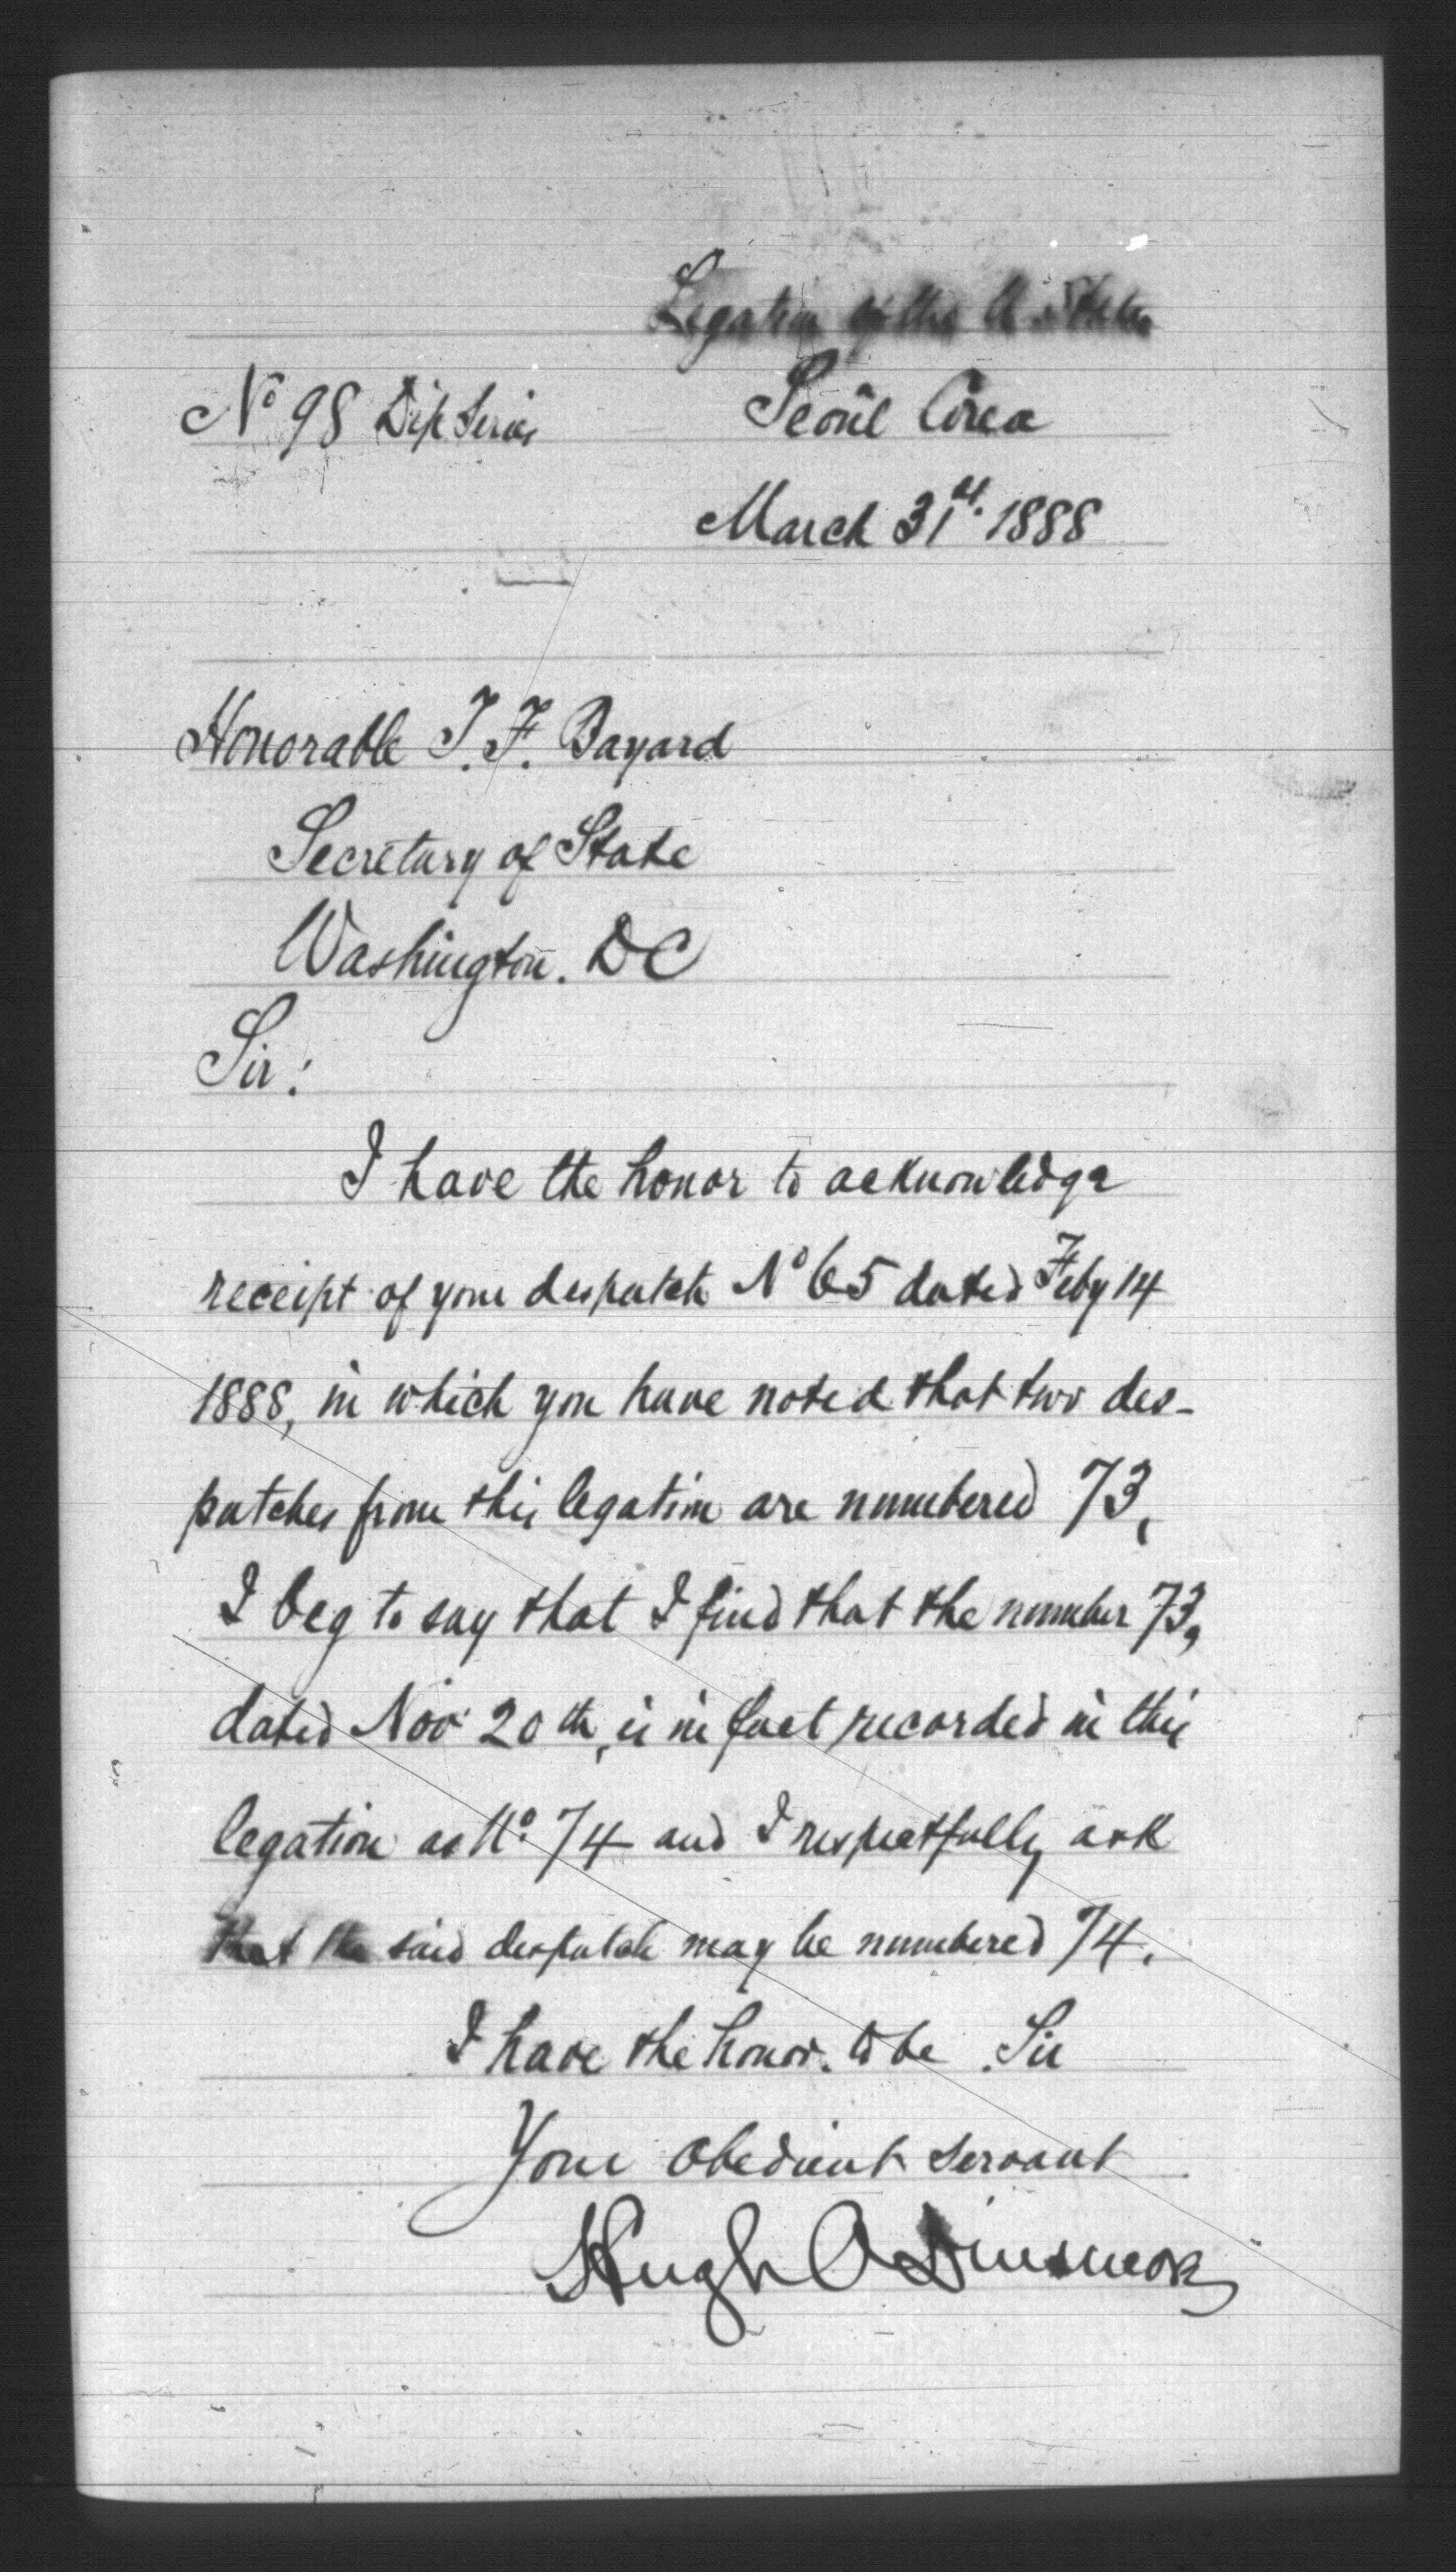 Legation of the U. States
No 98 Dip Series
Seoul Corea
March 31st. 1888
Honorable T. F. Bayard
Secretary of State
Washington. DC
Sir:
I have the honor to acknowledge
receipt of your despatch No 65 dated Feby 14
1888, in which you have noted that two des-
patches from this legation are numbered 73,
I beg to say that I find that the number 73,
dated Nov 20th, is in fact recorded in this
legation as No. 74 and I respectfully ask
that the said despatch may be numbered 74.
I have the honor. to be Sir
Your obedient servant
Hugh A Dinsmore